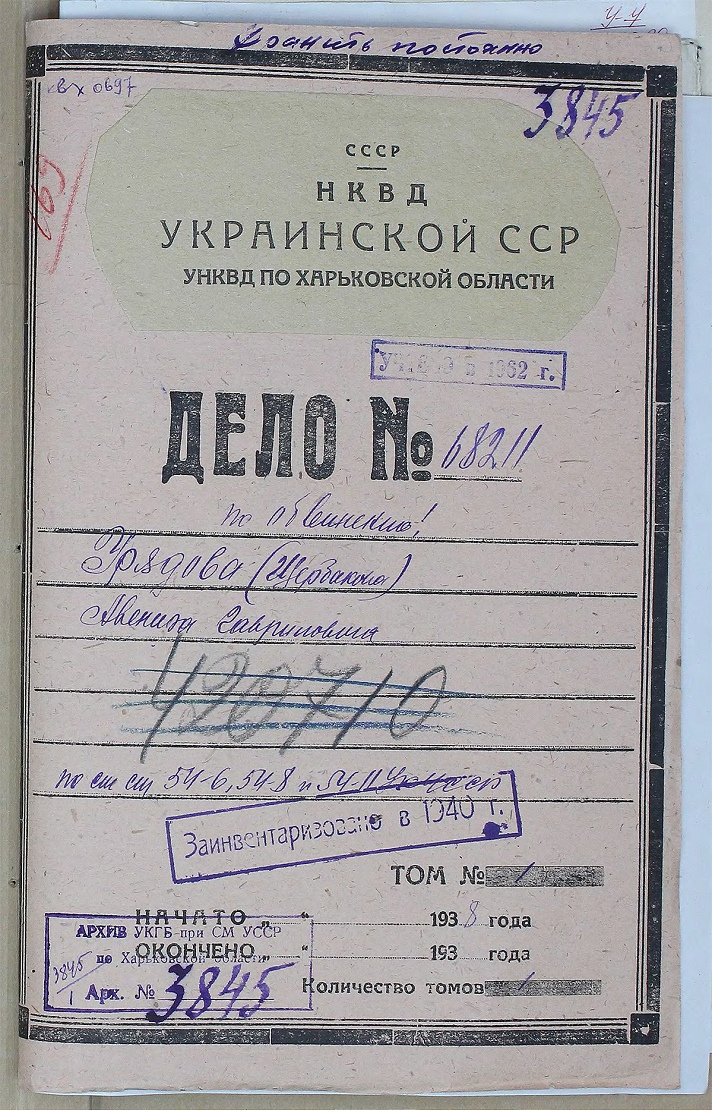 У-У
Хранить постоянно
вх 0697
3845
СССР
НКВД
УКРАИНСКОЙ ССР
УНКВД ПО ХАРЬКОВСКОЙ ОБЛАСТИ
в 1962 г.
ДЕЛО № 68211
по обвинению
(Щербакова)
Гавриловича
420710
по ст ст 54-6, 54-8 и 54-11
Заинвентаризовано в 1940 г.
ТОМ № 1
НАЧАТО „ “ 1938 года
АРХИВ УКГБ при СМ УССР
ОКОНЧЕНО „ “ 193 года
по Харьковской области
3845
1
Арх. № 3845
Количество томов 1